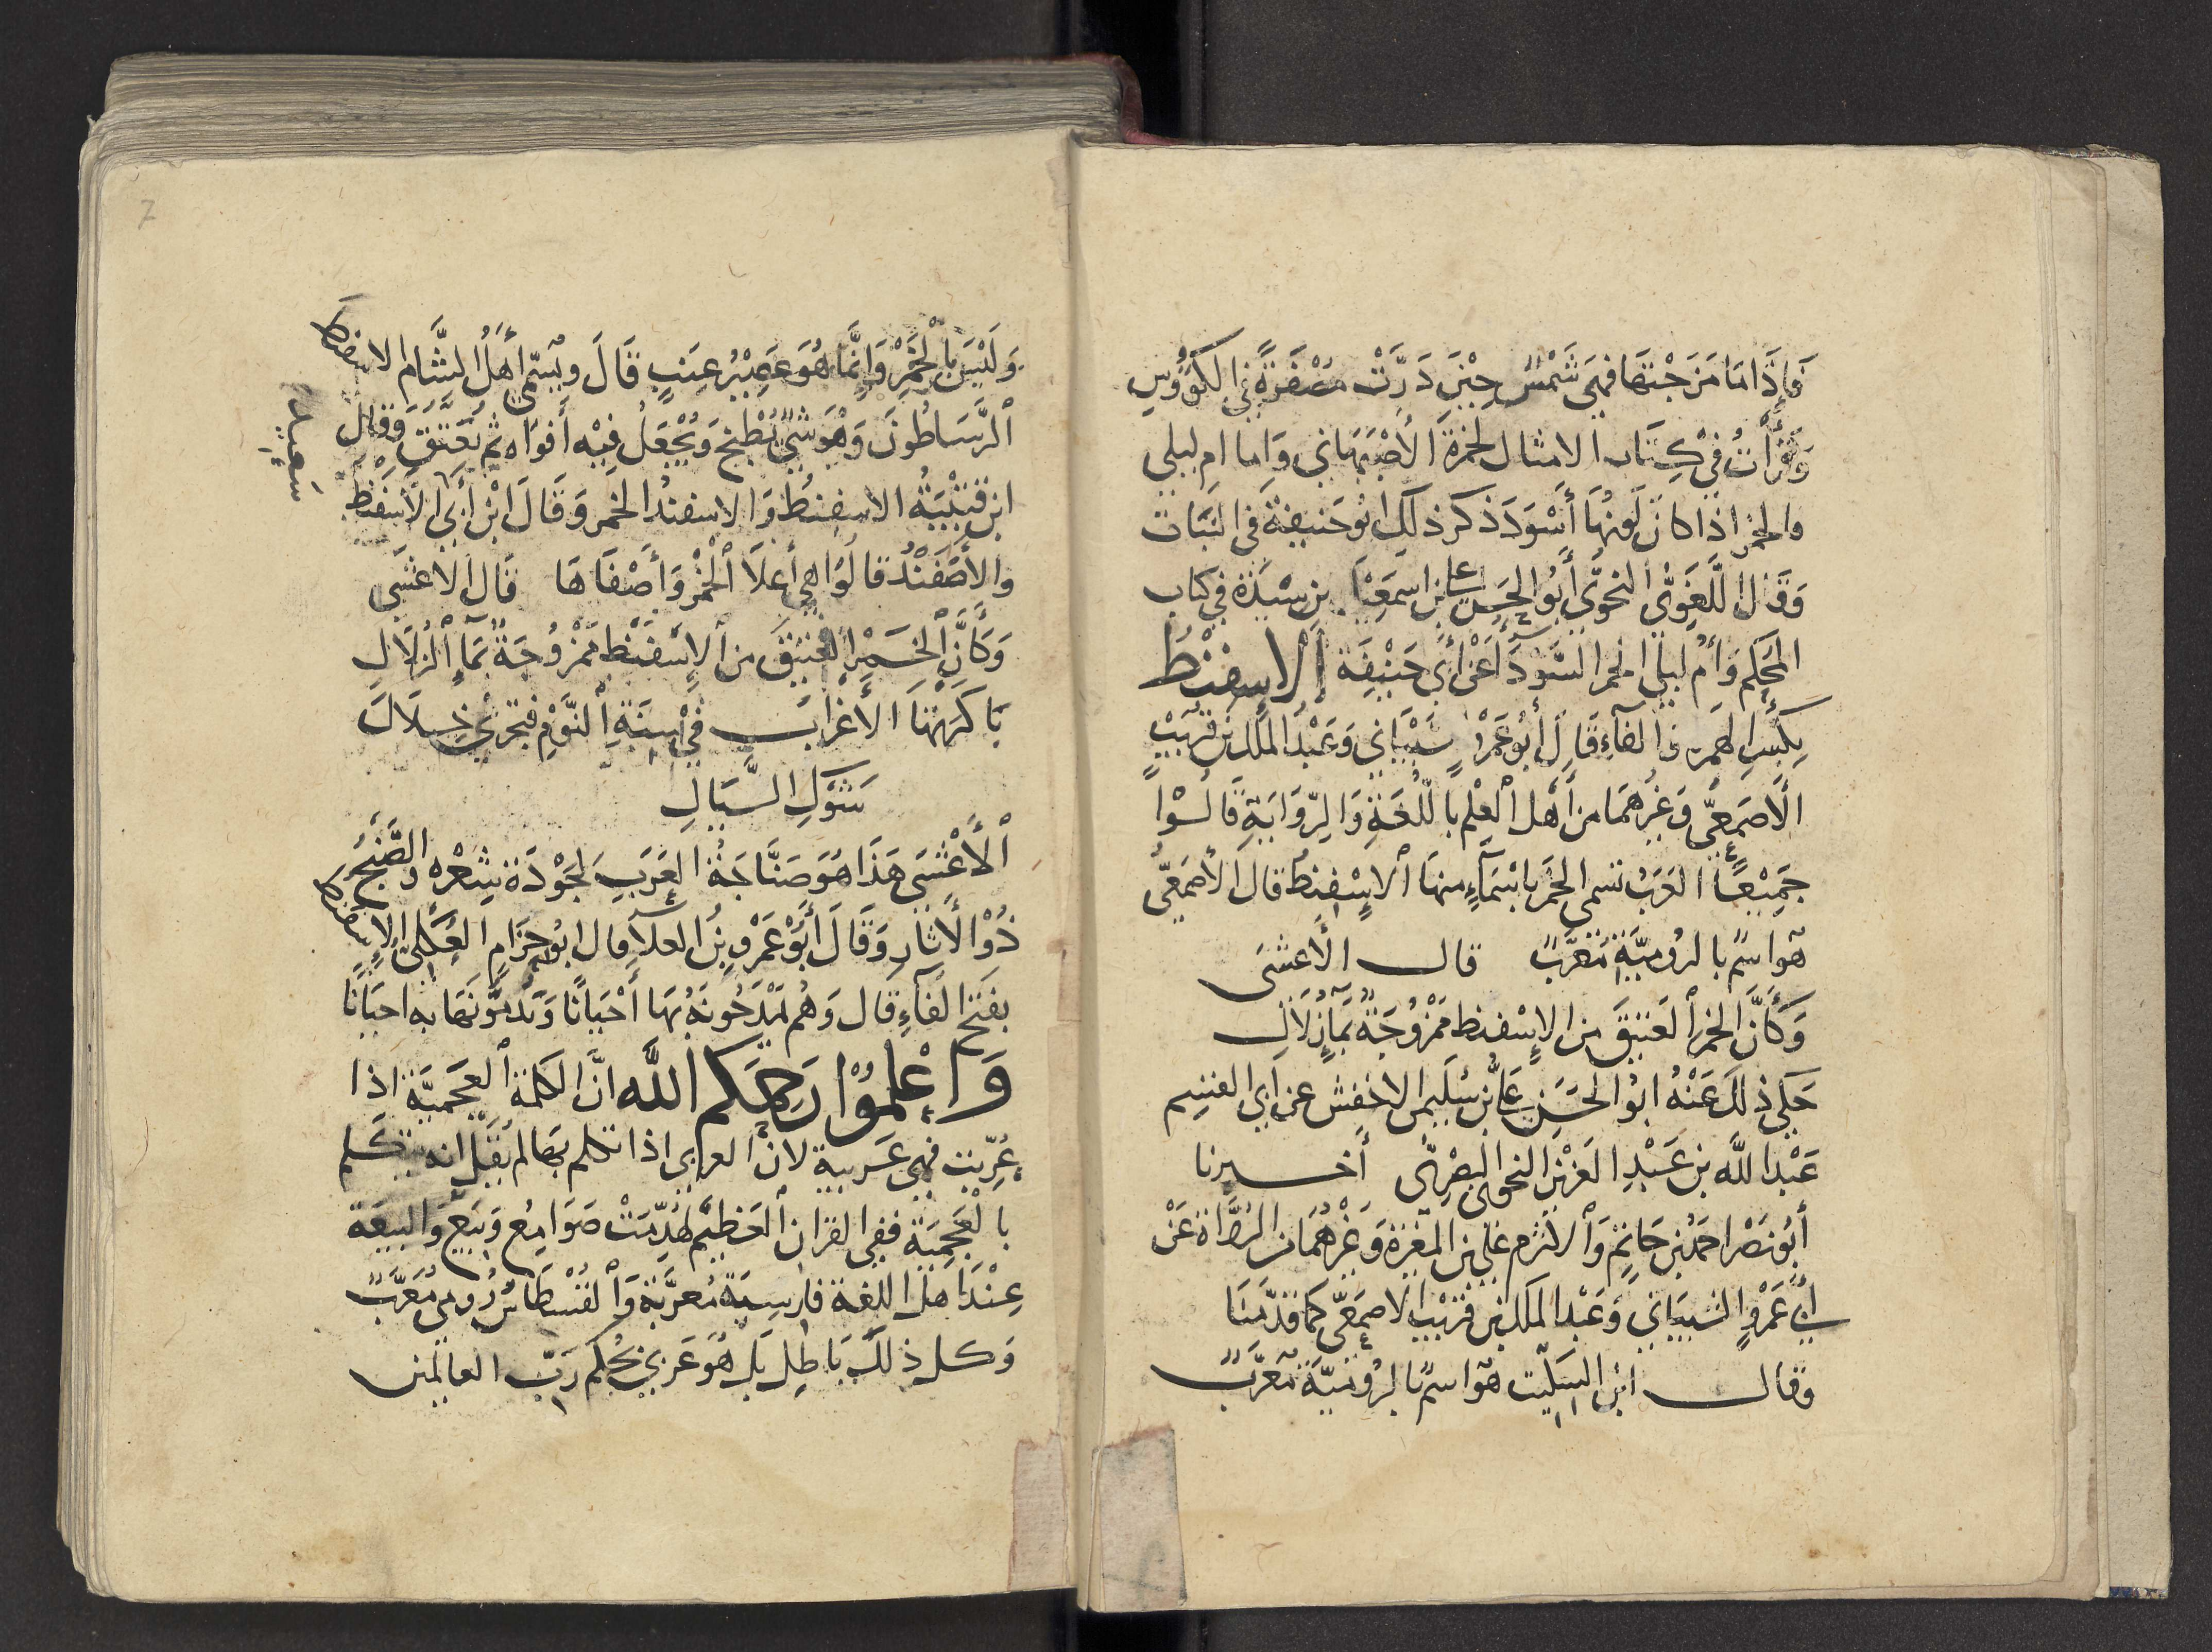 فَإِذَا مَا مَزَجْتَهَا فَهِيَ شَمْسٌ حِيْنَ دَرَّتْ مُصْفَرَّةً فِي الكُؤُوسِ
وَقَرَأْتُ فِي كِتَاب الامثال لحمزة الأصْبَهَاني وَاما ام ليلى
والخمر اذا كان لَونُهَا أَسْوَدَ ذكر ذلك ابُو حَنيفة في النَبَات
وَقَال اللُّغَوِيُّ النحوِيُّ أَبُو الحَسَن علي بن اسمعيل بن سِيْدَة في كتاب
المحكم وَأُم لَيلى الخمر السَّوْدَآءُ عن أبي حَنِيْفَة الاسفنْطُ
بِكَسْرِ الهمزة والفآءِ قَالَ أَبُو عَمْرٍو شَيْبَاني وَعَبْدُ الملك بن قُرَيْبٍ
الأَصمَعيّ وَغيرهمَا من أَهل العِلْم باللُّغَةِ وَالرِّوَايَةِ قَالُوْا
جَمِيْعًا العَرَبُ تسمى الخمر باسْمَآءٍ منهَا الإسْفِنطُ قال الأصمعيّ
هو اسْم بالرُوميَّةِ مُعَرَّبٌ قال الأَعشَى
وَكَأَنَّ الخمرَ العَتيقَ من الإسْفنط مَمْزُوْجَةٌ بمَآءٍ زُلَالِ
حَكى ذلك عَنْهُ ابوُ الحَسَن علي بن سُلَيمن الاخفش عن ابي القسِم
عَبْد اللَّه بن عَبْدِ العَزيْز النحوي البصْرِيّ أخبرنا
أَبُو نَصْر احمَدُ بن حَاتِم وَالاثرَم علي بن المغيرة وَغيْرهُمَا من الرُّوَاة عَنْ
أَبي عَمْرٍو الشيبَاني وَعَبْد الملك بن قُرَيْب الاصمَعيّ كما قدّمنَا
وقال ابْن السِكّيت هو اسْم بالرُوْميَّةِ مُعَرَّبٌ
وَلَيْسَ بِالْخَمْرِ وَإِنَّمَا هُوَ عَصِيْرُ عِنَبٍ قَالَ وَيُسَمّي أَهْلُ الشَّام الاسفنط
الرَّسَاطُونَ وَهُوَ شَيْءٌ يُطْبَخ وَيُجْعَلُ فِيْه أَفوَاه ثم يُعَتَّق وَقال
ابن قُتَيْبَةُ الاسفِنطُ وَالاسفندُ الخَمر وَقَالَ ابْن أَبي سَعِيد الأَسفَنط
والأَصْفَنْدُ قالوُا هي أَعلاَ الخَمْر وَأَصْفَاهَا قَال الأعشَى
وَكَأَنَّ الخَمْرَ العَتيقَ من الإسْفَنْط مَمْزُوجَةٌ بمَآءِ الزُلَالِ
بَاكَرَتْهَا الأَغْرَاب في سِنَةِ النَّوْمِ فتجْري خِلَالَ
شَوْكِ السَّيَالِ
الأَعْشَى هَذَا هُوَ صَنَّاجَةُ العَرَبِ لِجَوْدَة شِعْره والصَّنْجُ
ذُوْ الأَوتَارِ وَقَالَ أَبُو عَمْرو بنُ العَلآء قال ابُو حِزَامٍ العُكْليُّ الاسفنط
بفَتْح الفَآءِ قَال وَهُم يَمْدَحُونَهُ بهَا أَحْيَانًا وَيَذمُّونَهَا به احيَانًا
وَاعْلمُوْا رَحِمَكم اللَّه انَّ الكلمة العجَميَّة اذا
عُرِّبَت فهي عَرَبية لان العربي اذا تكلم بها لم يُقَل انه يتكلم
بالْعَجَميَّة ففي القران العَظيْم لَهُدِّمَتْ صَوَامِعُ وَبِيَعٌ وَالبيعَة
عِنْدَ اهل اللغة فارسيَة مُعرَّبة وَالقُسْطَاسُ رُومي مُعَرَّبٌ
وَكل ذلك بَاطِل بَل هُوَ عَرَبي بحُكم رَبّ العالمين
سَعِيد
7